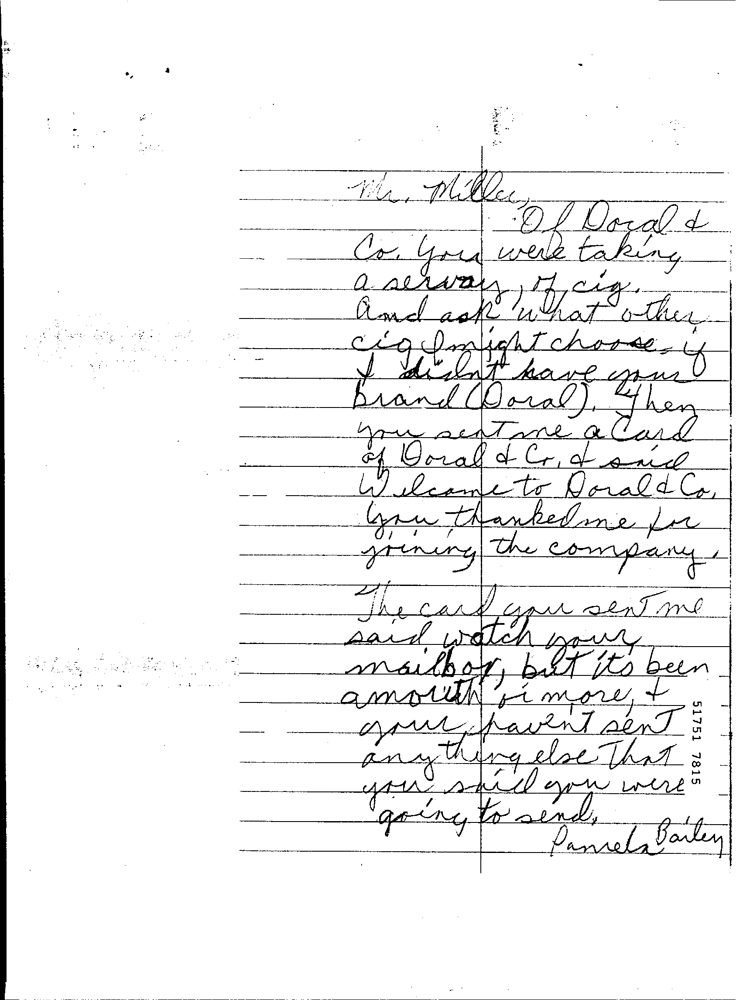 Mr. Miller,
Of Doral &
Co. You were taking
a servay, of cig.
And ask what other
cig I might choose, if
I didn't have your
brand (Doral). Then
you sent me a Card
of Doral & Co, & said
Welcome to Doral & Co,
You thanked me for
joining the company.
The card you sent me
said watch your
mailbox, but its been
a month or more, &
your, haven't sent
anything else That
you said you were
going to send,
Pamela Bailey
51751 7815